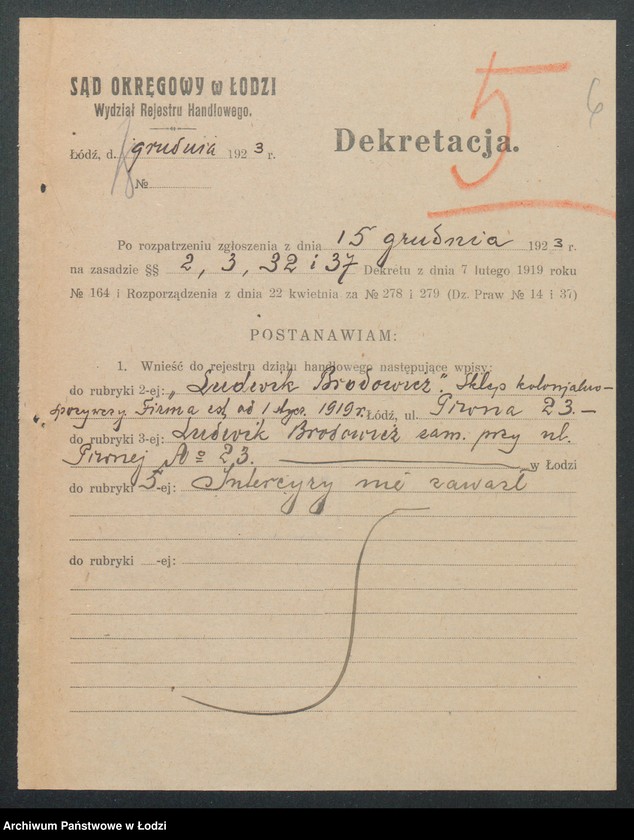 SĄD OKRĘGOWY w ŁODZI
Wydział Rejestru Handlowego.
5
6
Dekretacja.
Łódź, d. grudnia 1923 r.
№
Po rozpatrzeniu zgłoszenia z dnia 15 grudnia 1923 r.
na zasadzie §§ 2, 3, 32 i 37 Dekretu z dnia 7 lutego 1919 roku
№ 164 i Rozporządzenia z dnia 22 kwietnia za № 278 i 279 (Dz. Praw № 14 i 37)
POSTANAWIAM:
1. Wnieść do rejestru działu handlowego następujące wpisy:
do rubryki 2-ej: „Ludwik Brodowicz". Sklep kolonjalno-
spożywczy Firma istn. od 1 stycz. 1919 r. Łódź, ul. Piwna 23.—
do rubryki 3-ej: Ludwik Brodowicz zam. przy ul.
Piwnej № 23. w Łodzi
do rubryki 5-ej: Intercyzy nie zawarł
do rubryki -ej:
Archiwum Państwowe w Łodzi